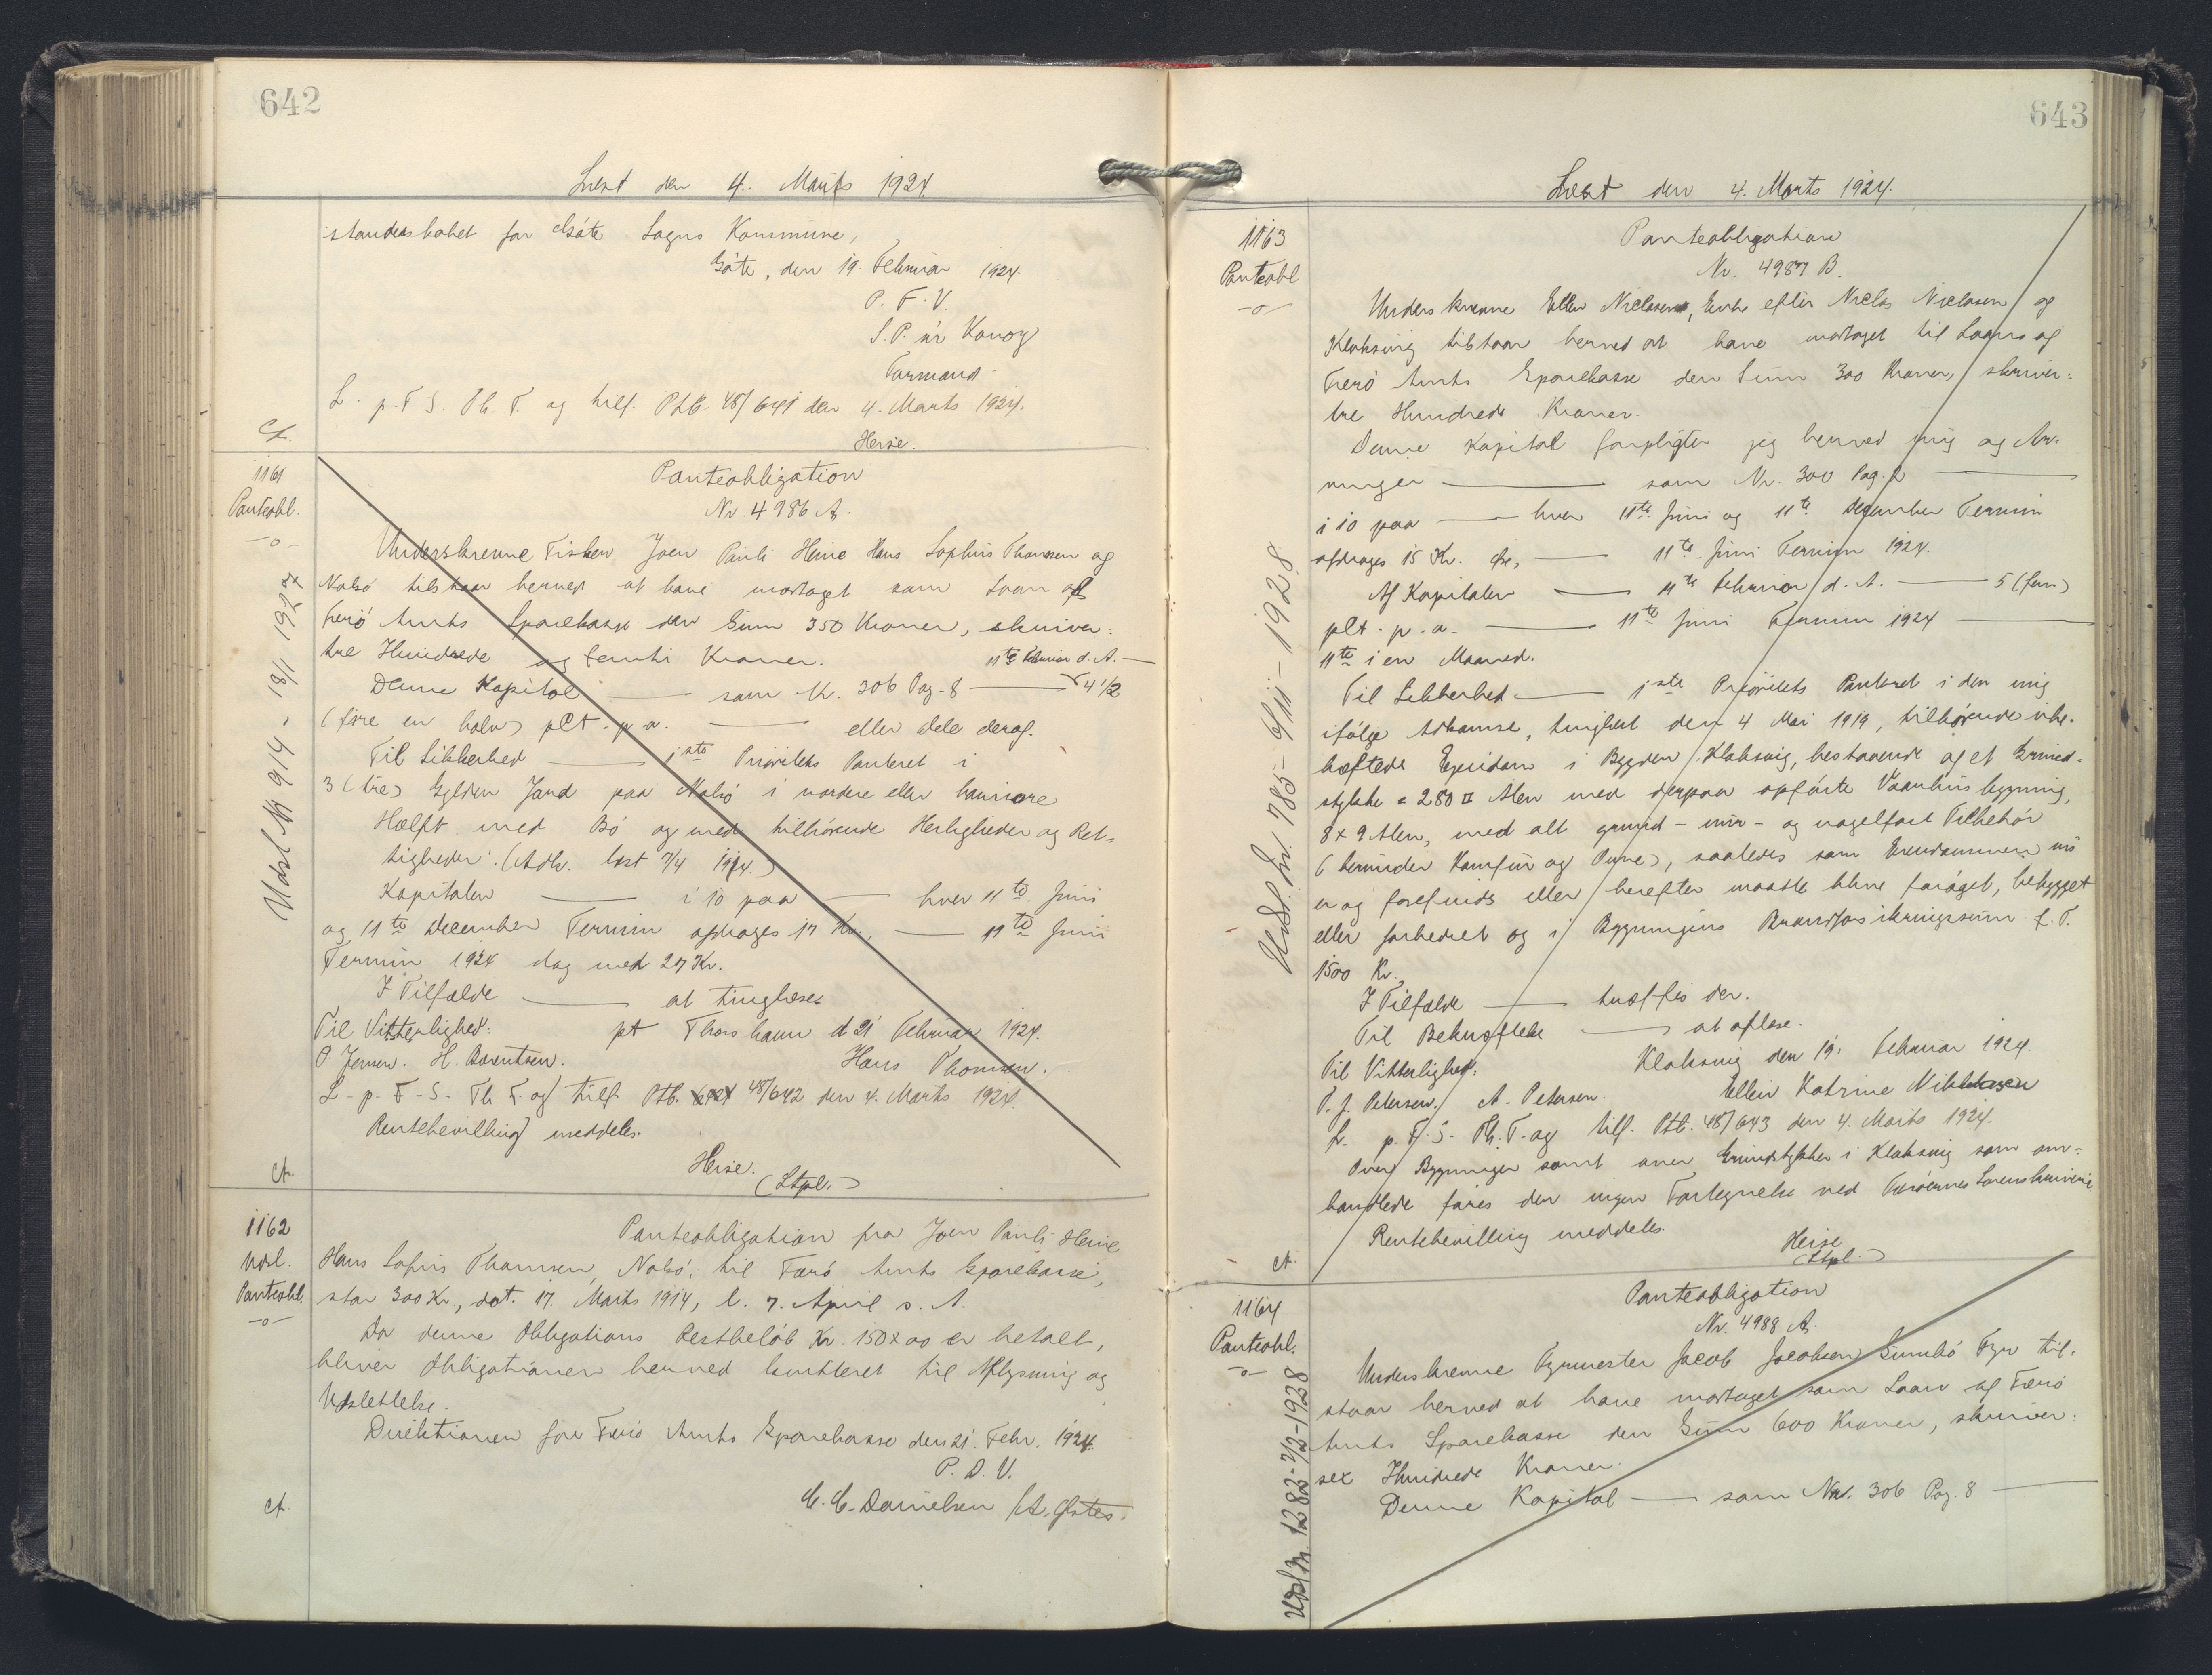 642
Læst den 4. Marts 1924.
standerskabet for Gøte Sogns Kommune,
Gøte, den 19. Februar 1924
P. F. V.
S. P. úr Konoy
Formand
L. p. F. S. Th. T. og tilf. Ptb. 48/641 den 4. Marts 1924.
Heise.
Ct.
1161
Panteobl.
-o-
Udsl. Nr 914 - 18/1 1927
Panteobligation
Nr. 4986 A.
Underskrevne Fisker Joen Pauli Heine Hans Sophus Thomsen og
Nolsø tilstaar herved at have modtaget som Laan af
Færø Amts Sparekasse den Sum 350 Kroner, skriver:
tre Hundrede og femti Kroner. 11te Februar d. A. —
Denne Kapital — som Nr. 306 Pag. 8 — 4 1/2
(fire en halv) pCt. p. a. — eller dele deraf.
Til Sikkerhed — 1ste Prioritets Panteret i
3 (tre) Gylden Jord paa Nolsø i nordere eller heimore
Hælft med Bø og med tilhørende Herligheder og Ret-
tigheder. (Adk. læst 7/4 1914.)
Kapitalen — i 10 paa — hver 11te Juni
og 11te December Termin afdrages 17 Kr., — 11te Juni
Termin 1924 dog med 27 Kr.
I Tilfælde — at tinglæses
Til Vitterlighed: pt Thorshavn d 21 Februar 1924.
P. Jensen. H. Berentsen. Hans Thomsen.
L. p. F. S. Th. T. og tilf. Ptb. 48/642 den 4. Marts 1924.
Rentebevilling meddeles.
Heise.
(Stpl.)
Ct.
1162
Udsl.
Panteobl.
-o-
Panteobligation fra Joen Pauli Heine
Hans Sofus Thomsen, Nolsø, til Færø Amts Sparekasse,
stor 300 Kr., dat. 17. Marts 1914, l. 7. April s. A.
Da denne Obligations Restbeløb Kr. 150 x 00 er betalt,
bliver Obligationen herved kvitteret til Aflysning og
Udslettelse.
Direktionen for Færø Amts Sparekasse den 21. Febr. 1924.
P. D. V.
C. C. Danielsen /
Ct.
643
Læst den 4. Marts 1924.
1163
Panteobl
-o-
Udsl. Nr. 785 - 6/11 - 1928
Panteobligation
Nr. 4987 B.
Underskrevne Ellen Niclasen, Enke efter Niclas Niclasen og
Klaksvig tilstaar herved at have modtaget til Laans af
Færø Amts Sparekasse den Sum 300 Kroner, skriver:
tre Hundrede Kroner.
Denne Kapital forpligter jeg herved mig og Ar-
vinger — som Nr. 300 Pag. 2 —
i 10 paa — hver 11te Juni og 11te December Termin
afdrages 15 Kr. — 11te Juni Termin 1924.
Af Kapitalen — 11te Februar d. A. — 5 (fem)
pCt. p. a. — 11te Juni Termin 1924 —
11te i en Maaned.
Til Sikkerhed — 1ste Prioritets Panteret i den mig
ifølge Adkomst, tinglæst den 4 Mai 1919, tilhørende ube-
hæftede Ejendom i Bygden Klaksvig, bestaaende af et Grund-
stykke = 280 □ Alen med derpaa opførte Vaanhusbygning,
8 x 9 Alen, med alt grund- mur- og nagelfast Tilbehør
(herunder Komfur og Ovne), saaledes som Ejendommen nu
er og forefindes eller herefter maatte blive forøget, bebygget
eller forbedret og i Bygningens Brandforsikringssum f. T.
1500 Kr.
I Tilfælde — træffes der.
Til Bekræftelse — at aflæse.
Til Vitterlighed: Klaksvig den 19. Februar 1924.
P. J. Petersen. A. Petersen. Ellen Katrine Niklasen
L. p. F. S. Th. T. og tilf. Ptb. 48/643 den 4. Marts 1924.
Over Bygninger samt over Grundstykker i Klaksvig som om-
handlede føres der ingen Fortegnelse ved Færøernes Sorenskriveri.
Rentebevilling meddeles.
Heise
(Stpl.)
Ct.
1164
Panteobl.
-o-
Udsl. Nr. 1282 - 2/3 - 1928
Panteobligation
Nr. 4988 A.
Underskrevne Fyrmester Jacob Jacobsen Sumbø Fyr til-
staar herved at have modtaget som Laan af Færø
Amts Sparekasse den Sum 600 Kroner, skriver:
sex Hundrede Kroner.
Denne Kapital — som Nr. 306 Pag. 8 —